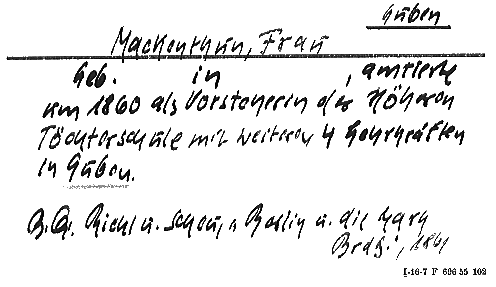 Guben
Mackenthun, Frau
Geb. in , amtierte
um 1860 als Vorsteherin der Höheren
Töchterschule mit weiteren 4 Lehrkräften
in Guben.
Riehl u. Scheu, Berlin u. die Mark
Brdbg., 1861
I-16-7 F 696 55 102